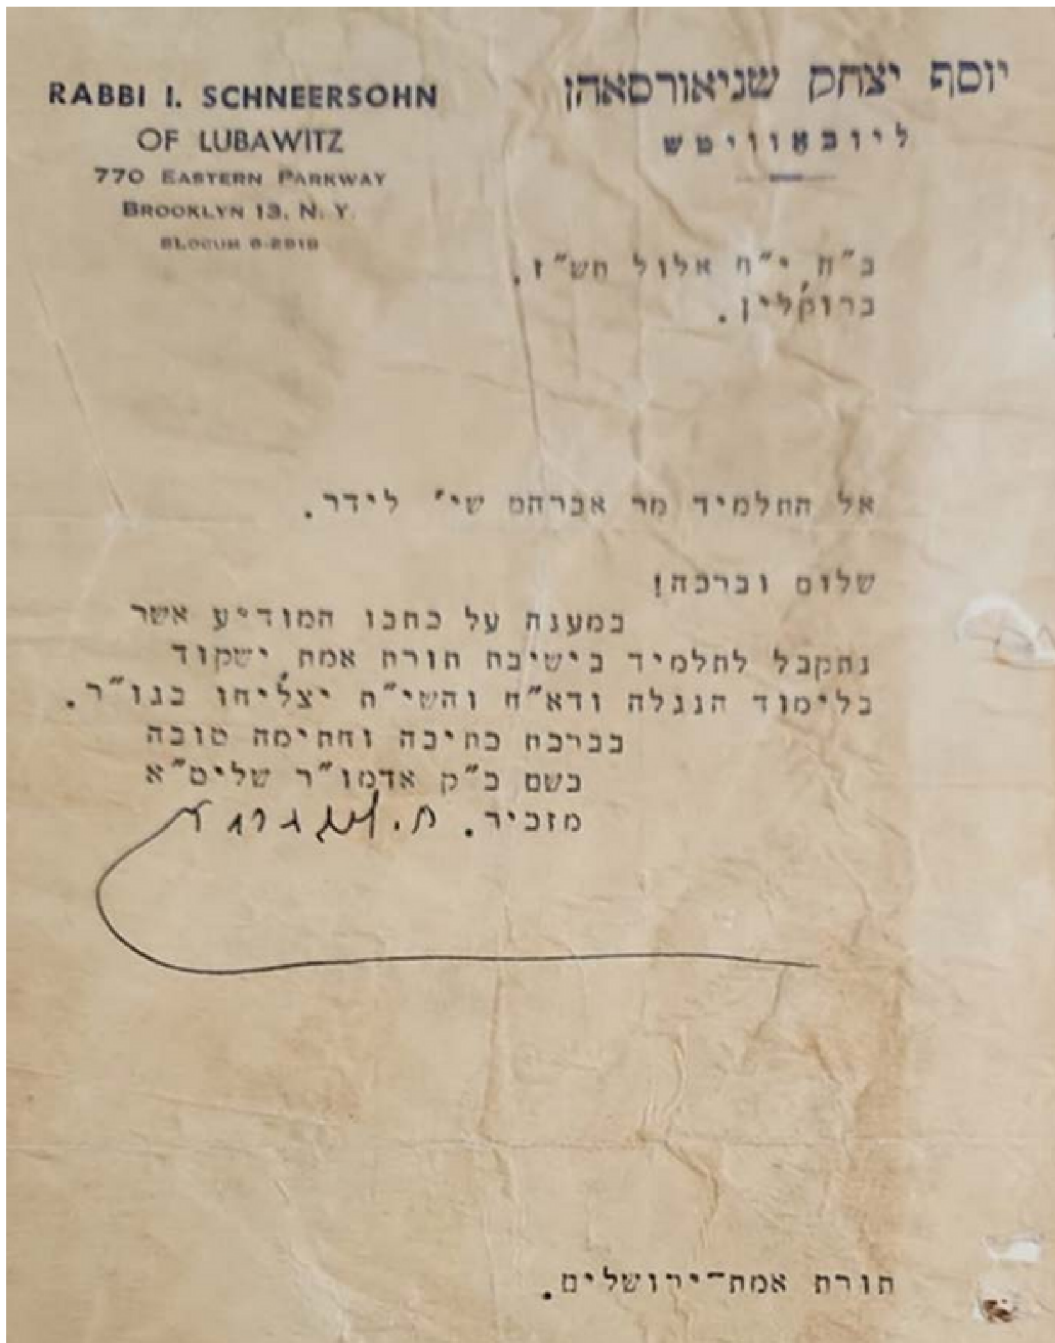 RABBI I. SCHNEERSOHN
OF LUBAWITZ
770 EASTERN PARKWAY
BROOKLYN 13, N. Y.
SLOCUM 6-2919
יוסף יצחק שניאורסאהן
ליובאוויטש
ב"ה, י"ח אלול תש"ז.
ברוקלין.
אל התלמיד מר אברהם שי' לידר.
שלום וברכה!
במענה על כתבו המודיע אשר
נתקבל לתלמיד בישיבת תורת אמת, ישקוד
בלימוד הנגלה ודא"ח והשי"ת יצליחו בגו"ר.
בברכת כתיבה וחתימה טובה
בשם כ"ק אדמו"ר שליט"א
מזכיר.
תורת אמת-ירושלים.